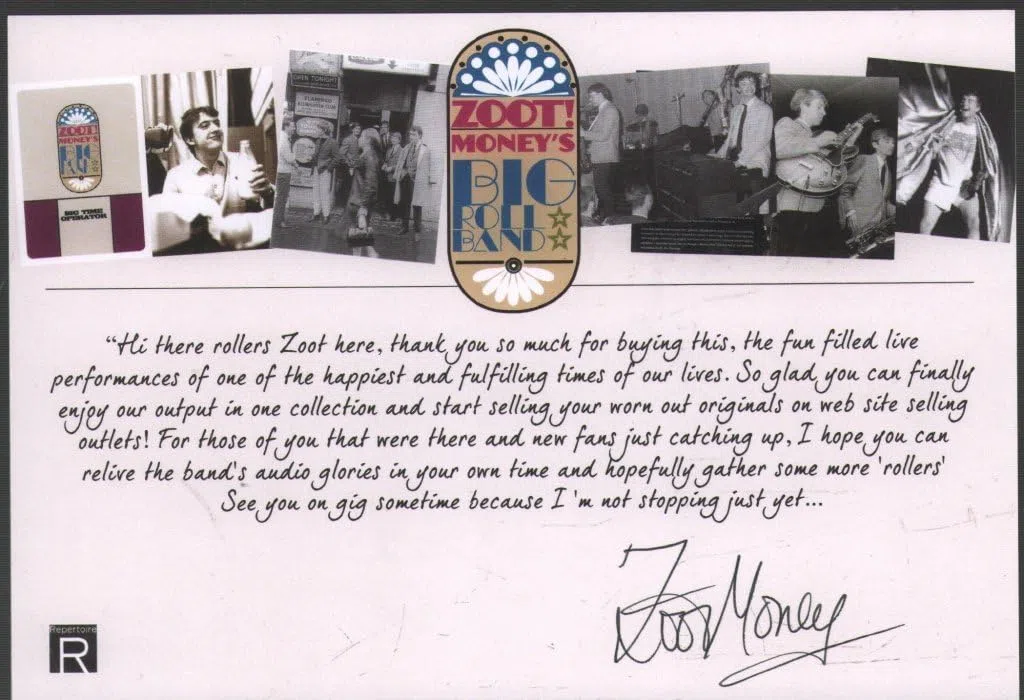 ZOOT!
MONEY'S
BIG
ROLL
BAND
ZOOT!
MONEY'S
BIG
ROLL
BAND
BIG TIME
OPERATOR
OPEN TONIGHT
FLAMINGO
“Hi there rollers Zoot here, thank you so much for buying this, the fun filled live
performances of one of the happiest and fulfilling times of our lives. So glad you can finally
enjoy our output in one collection and start selling your worn out originals on web site selling
outlets! For those of you that were there and new fans just catching up, I hope you can
relive the band's audio glories in your own time and hopefully gather some more 'rollers'
See you on gig sometime because I 'm not stopping just yet...
Zoot Money
Repertoire
R